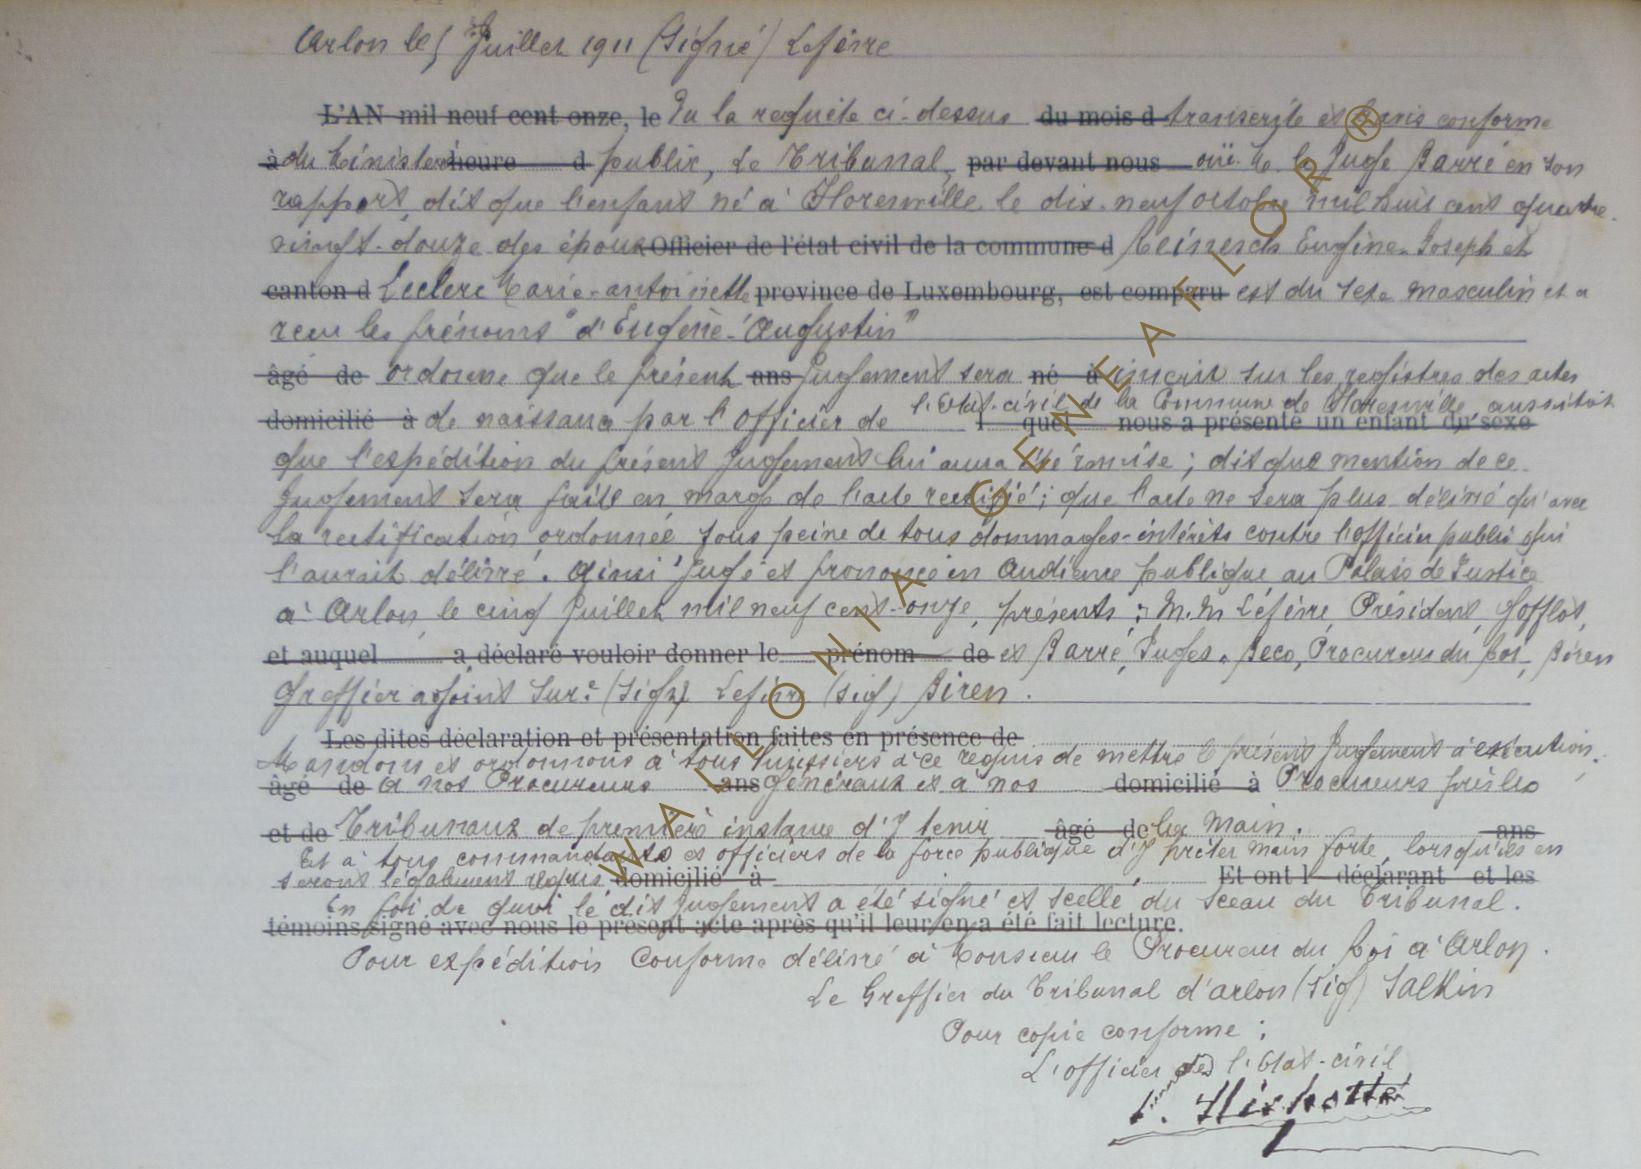 Arlon le 5 Juillet 1911 (Signé) Lefèvre
L'AN mil neuf cent onze, le Vu la requête ci-dessus du mois d transcrite et l'avis conforme
à du Ministère heure d public, Le Tribunal, par devant nous ouï M. le Juge Barré en son
rapport, dit que l'enfant né à Florenville le dix-neuf octobre mil huit cent quatre
vingt-douze des époux Officier de l'état civil de la commune d Eugène-Joseph et
canton d Leclerc Marie-antoinette province de Luxembourg, est comparu est du sexe masculin et a
reçu les prénoms "d'Eugène-Augustin"
âgé de ordonne que le présent ans Jugement sera né à inscrit sur les registres des actes
domicilié à de naissance par l'Officier de l'Etat-civil de la Commune de Florenville, aussitôt l quel nous a présenté un enfant du sexe
que l'expédition du présent Jugement lui aura été remise ; dit que mention de ce
Jugement sera faite en marge de l'acte rectifié ; que l'acte ne sera plus délivré qu'avec
la rectification ordonnée sous peine de tous dommages-intérêts contre l'officier public qui
l'aurait délivré. Ainsi Jugé et prononcé en Audience publique au Palais de Justice
à Arlon, le cinq Juillet mil neuf cent-onze, présents : M.M Lefèvre, Président, Gofflot,
et auquel a déclaré vouloir donner le prénom de et Barré, Juges. Beco, Procureur du Roi, Biren
Greffier adjoint Surre (Sig) Lefèvre (sig) Biren.
Les dites déclaration et présentation faites en présence de
Mandons et ordonnons à tous huissiers à ce requis de mettre le présent Jugement à exécution,
âgé de A nos Procureurs ans généraux et à nos domicilié à Procureurs près les
et de Tribunaux de première instance d'y tenir âgé de la main. ans
Et à tous commandants et officiers de la force publique d'y prêter main forte, lorsqu'ils en
seront légalement requis domicilié à Et ont l déclarant et les
En foi de quoi le dit Jugement a été signé et scellé du sceau du Tribunal.
témoins signé avec nous le présent acte après qu'il leur en a été fait lecture.
Pour expédition Conforme délivré à Monsieur le Procureur du Roi à Arlon.
Le Greffier du Tribunal d'arlon (Sig) Salkin
Pour copie conforme :
L'officier de l'Etat-civil
WALLONIA GENEAFLOR®